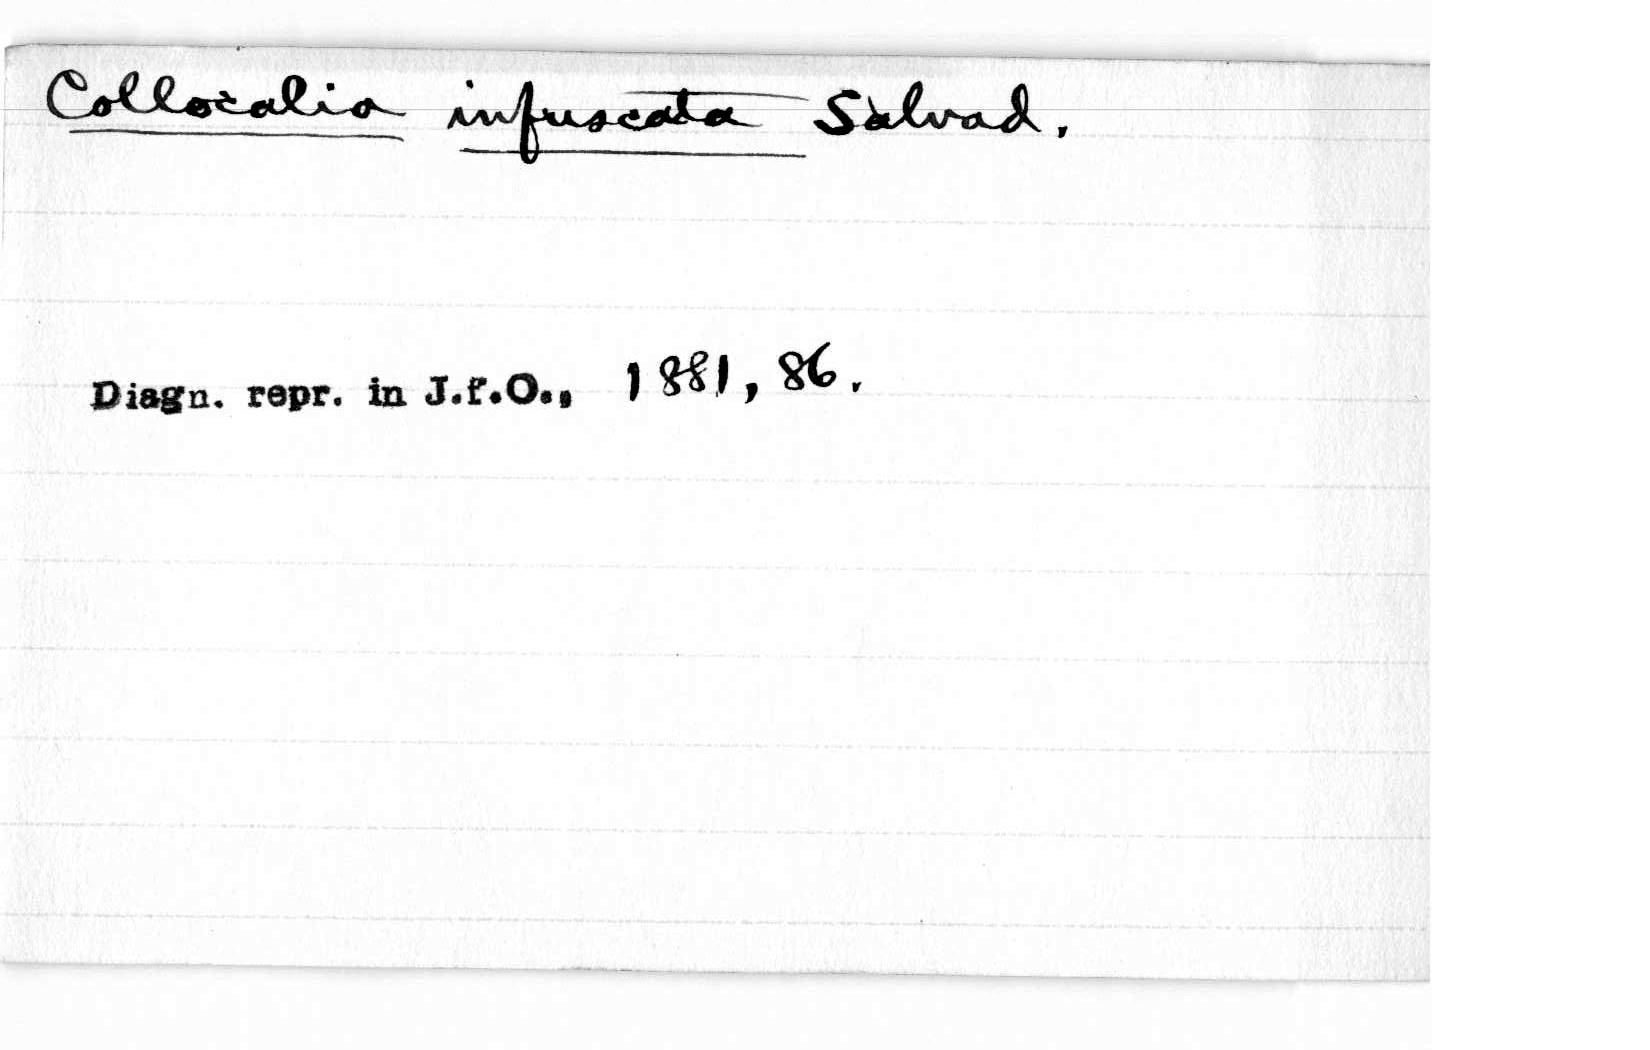 Collocalia infuscata Salvad.
Diagn. repr. in J.f.O., 1881, 86.